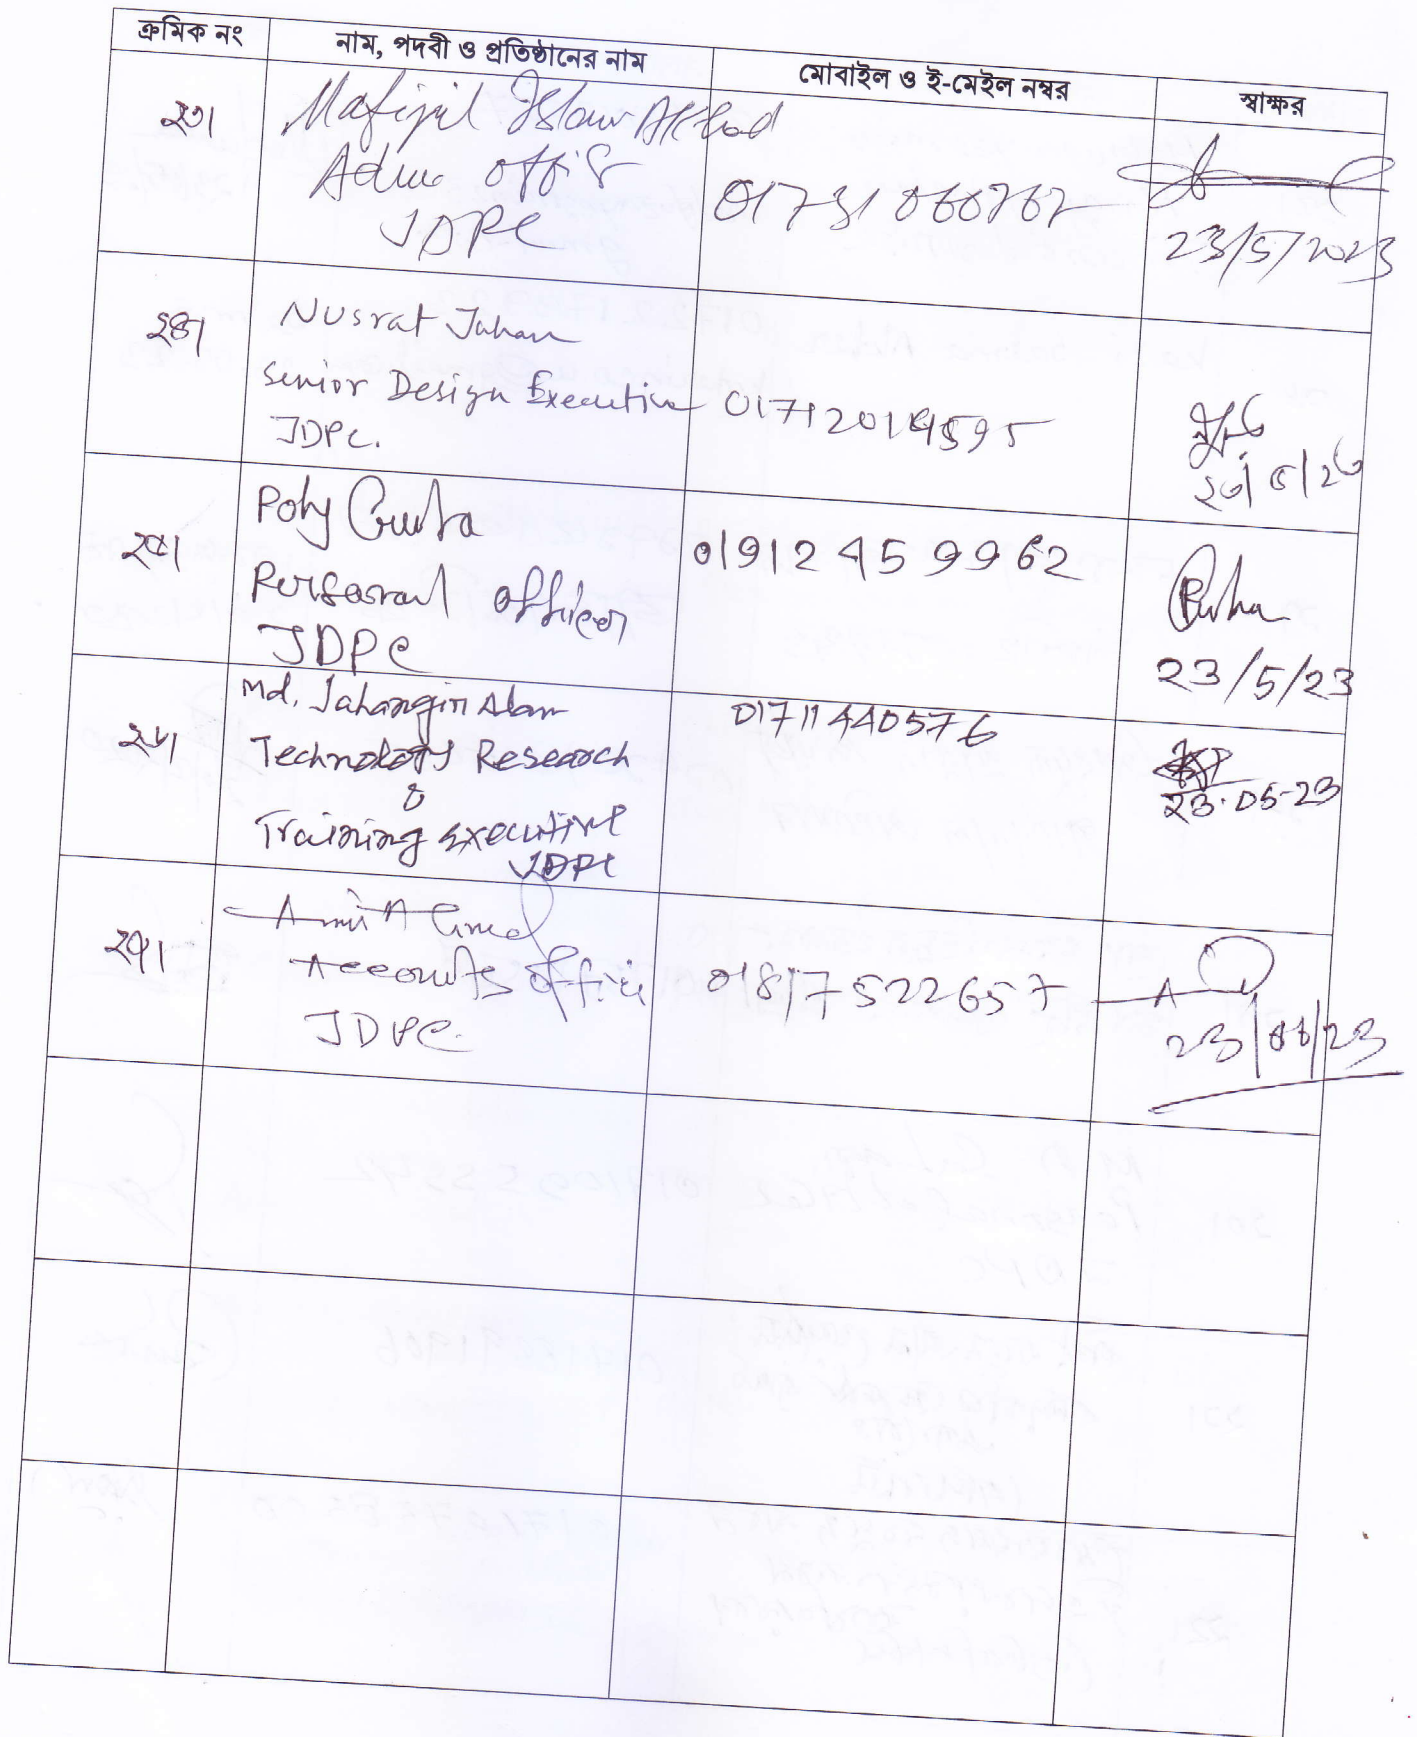 ক্রমিক নং
নাম, পদবী ও প্রতিষ্ঠানের নাম
মোবাইল ও ই-মেইল নম্বর
স্বাক্ষর
২৩।
Mafijul Islam
Admin
JDPC
23/5/2023
২৪।
Nusrat Jahan
Senior Design Executive
JDPC.
01712014595
২৩/৫/২৩
২৫।
Poly
officer
JDPC
01912459962
23/5/23
২৬।
Md. Jahangir Alam
Technology Research
&
Training executive
JDPC
01711440576
23.05-23
২৭।
Accounts officer
JDPC
01817522657